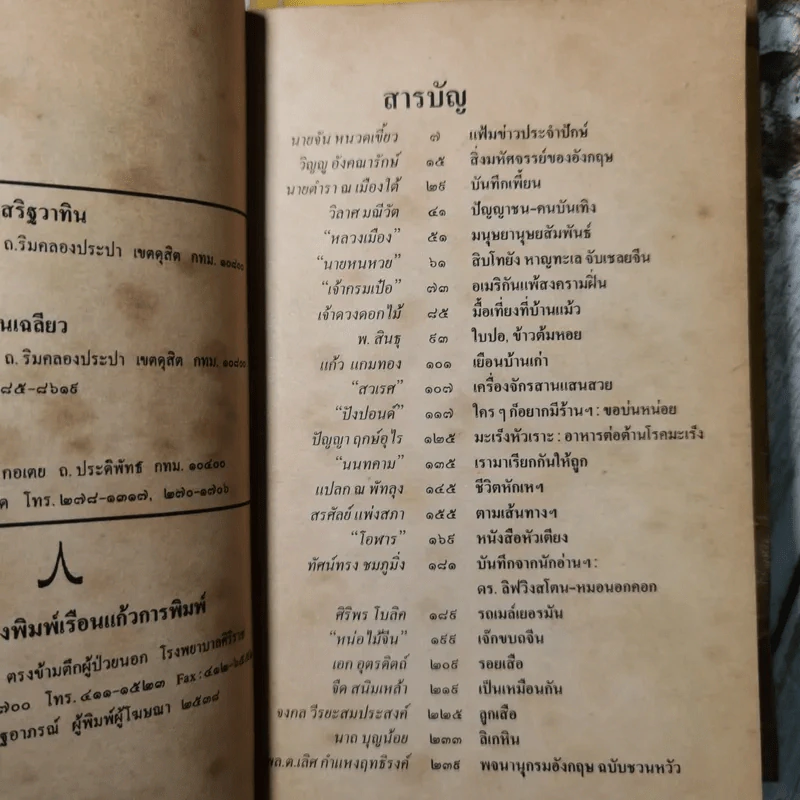 สริฐวาทิน
ถ.ริมคลองประปา เขตดุสิต กทม. ๑๐๘๐๐
นเฉลียว
ถ. ริมคลองประปา เขตดุสิต กทม. ๑๐๘๐๐
๘๕-๘๖๑๙
กอเตย ถ. ประดิพัทธ์ กทม. ๑๐๔๐๐
ด โทร. ๒๗๘-๑๓๑๗, ๒๗๐-๑๗๐๖
งพิมพ์เรือนแก้วการพิมพ์
ตรงข้ามตึกผู้ป่วยนอก โรงพยาบาลศิริราช
๗๐๐ โทร. ๔๑๑-๑๕๒๓ Fax :
ฐอาภรณ์ ผู้พิมพ์ผู้โฆษณา ๒๕๓๘
สารบัญ
นายจัน หนวดเขี้ยว ๗ แฟ้มข่าวประจำปักษ์
วิญญู อังคณารักษ์ ๑๕ สิ่งมหัศจรรย์ของอังกฤษ
นายตำรา ณ เมืองใต้ ๒๙ บันทึกเพี้ยน
วิลาศ มณีวัต ๔๑ ปัญญาชน-คนบันเทิง
“หลวงเมือง” ๕๑ มนุษยานุษยสัมพันธ์
“นายหนหวย” ๖๑ สิบโทยัง หาญทะเล จับเชลยจีน
“เจ้ากรมเป๋อ” ๗๓ อเมริกันแพ้สงครามฝิ่น
เจ้าดวงดอกไม้ ๘๕ มื้อเที่ยงที่บ้านแม้ว
พ. สินธุ ๙๓ ใบปอ, ข้าวต้มหอย
แก้ว แกมทอง ๑๐๑ เยือนบ้านเก่า
“สวเรศ” ๑๐๗ เครื่องจักรสานแสนสวย
“ปังปอนด์” ๑๑๗ ใคร ๆ ก็อยากมีร้านฯ : ขอบ่นหน่อย
ปัญญา ฤกษ์อุไร ๑๒๕ มะเร็งหัวเราะ : อาหารต่อต้านโรคมะเร็ง
“นนทคาม” ๑๓๕ เรามาเรียกกันให้ถูก
แปลก ณ พัทลุง ๑๔๕ ชีวิตหักเหฯ
สรศัลย์ แพ่งสภา ๑๕๕ ตามเส้นทางฯ
“โอฬาร” ๑๖๙ หนังสือหัวเตียง
ทัศน์ทรง ชมภูมิ่ง ๑๘๑ บันทึกจากนักอ่านฯ :
ดร. ลิฟวิงสโตน-หมอนอกคอก
ศิริพร โบลิค ๑๘๙ รถเมล์เยอรมัน
“หน่อไม้จีน” ๑๙๙ เจ๊กขบถจีน
เอก อุตรดิตถ์ ๒๐๙ รอยเสือ
จืด สนิมเหล้า ๒๑๙ เป็นเหมือนกัน
จงกล วีรยะสมประสงค์ ๒๒๕ ลูกเสือ
นาถ บุญน้อย ๒๓๓ ลิเกหิน
พล.ต.เลิศ กำแหงฤทธิรงค์ ๒๓๙ พจนานุกรมอังกฤษ ฉบับชวนหวัว